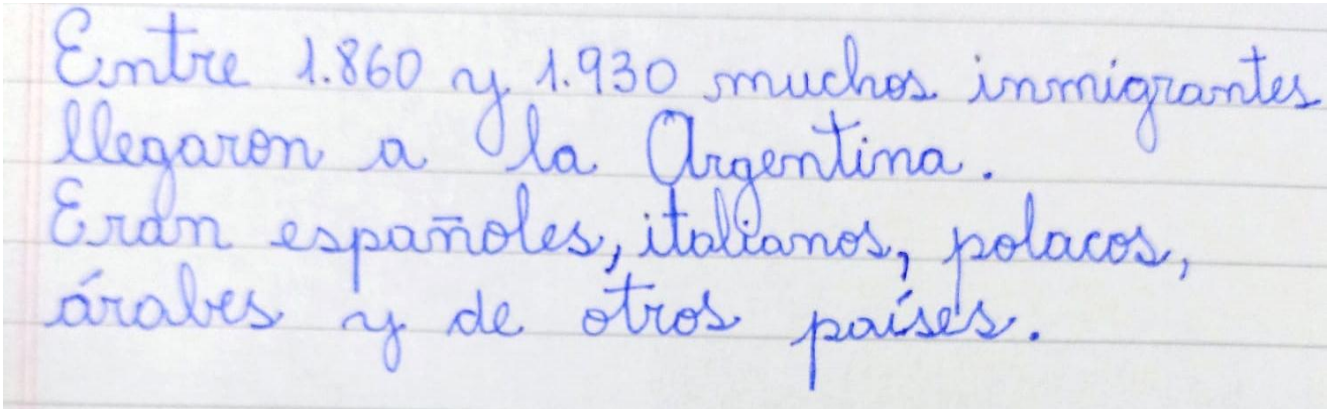 Entre 1.860 y 1.930 muchos inmigrantes
llegaron a la Argentina.
Eran españoles, italianos, polacos,
árabes y de otros países.